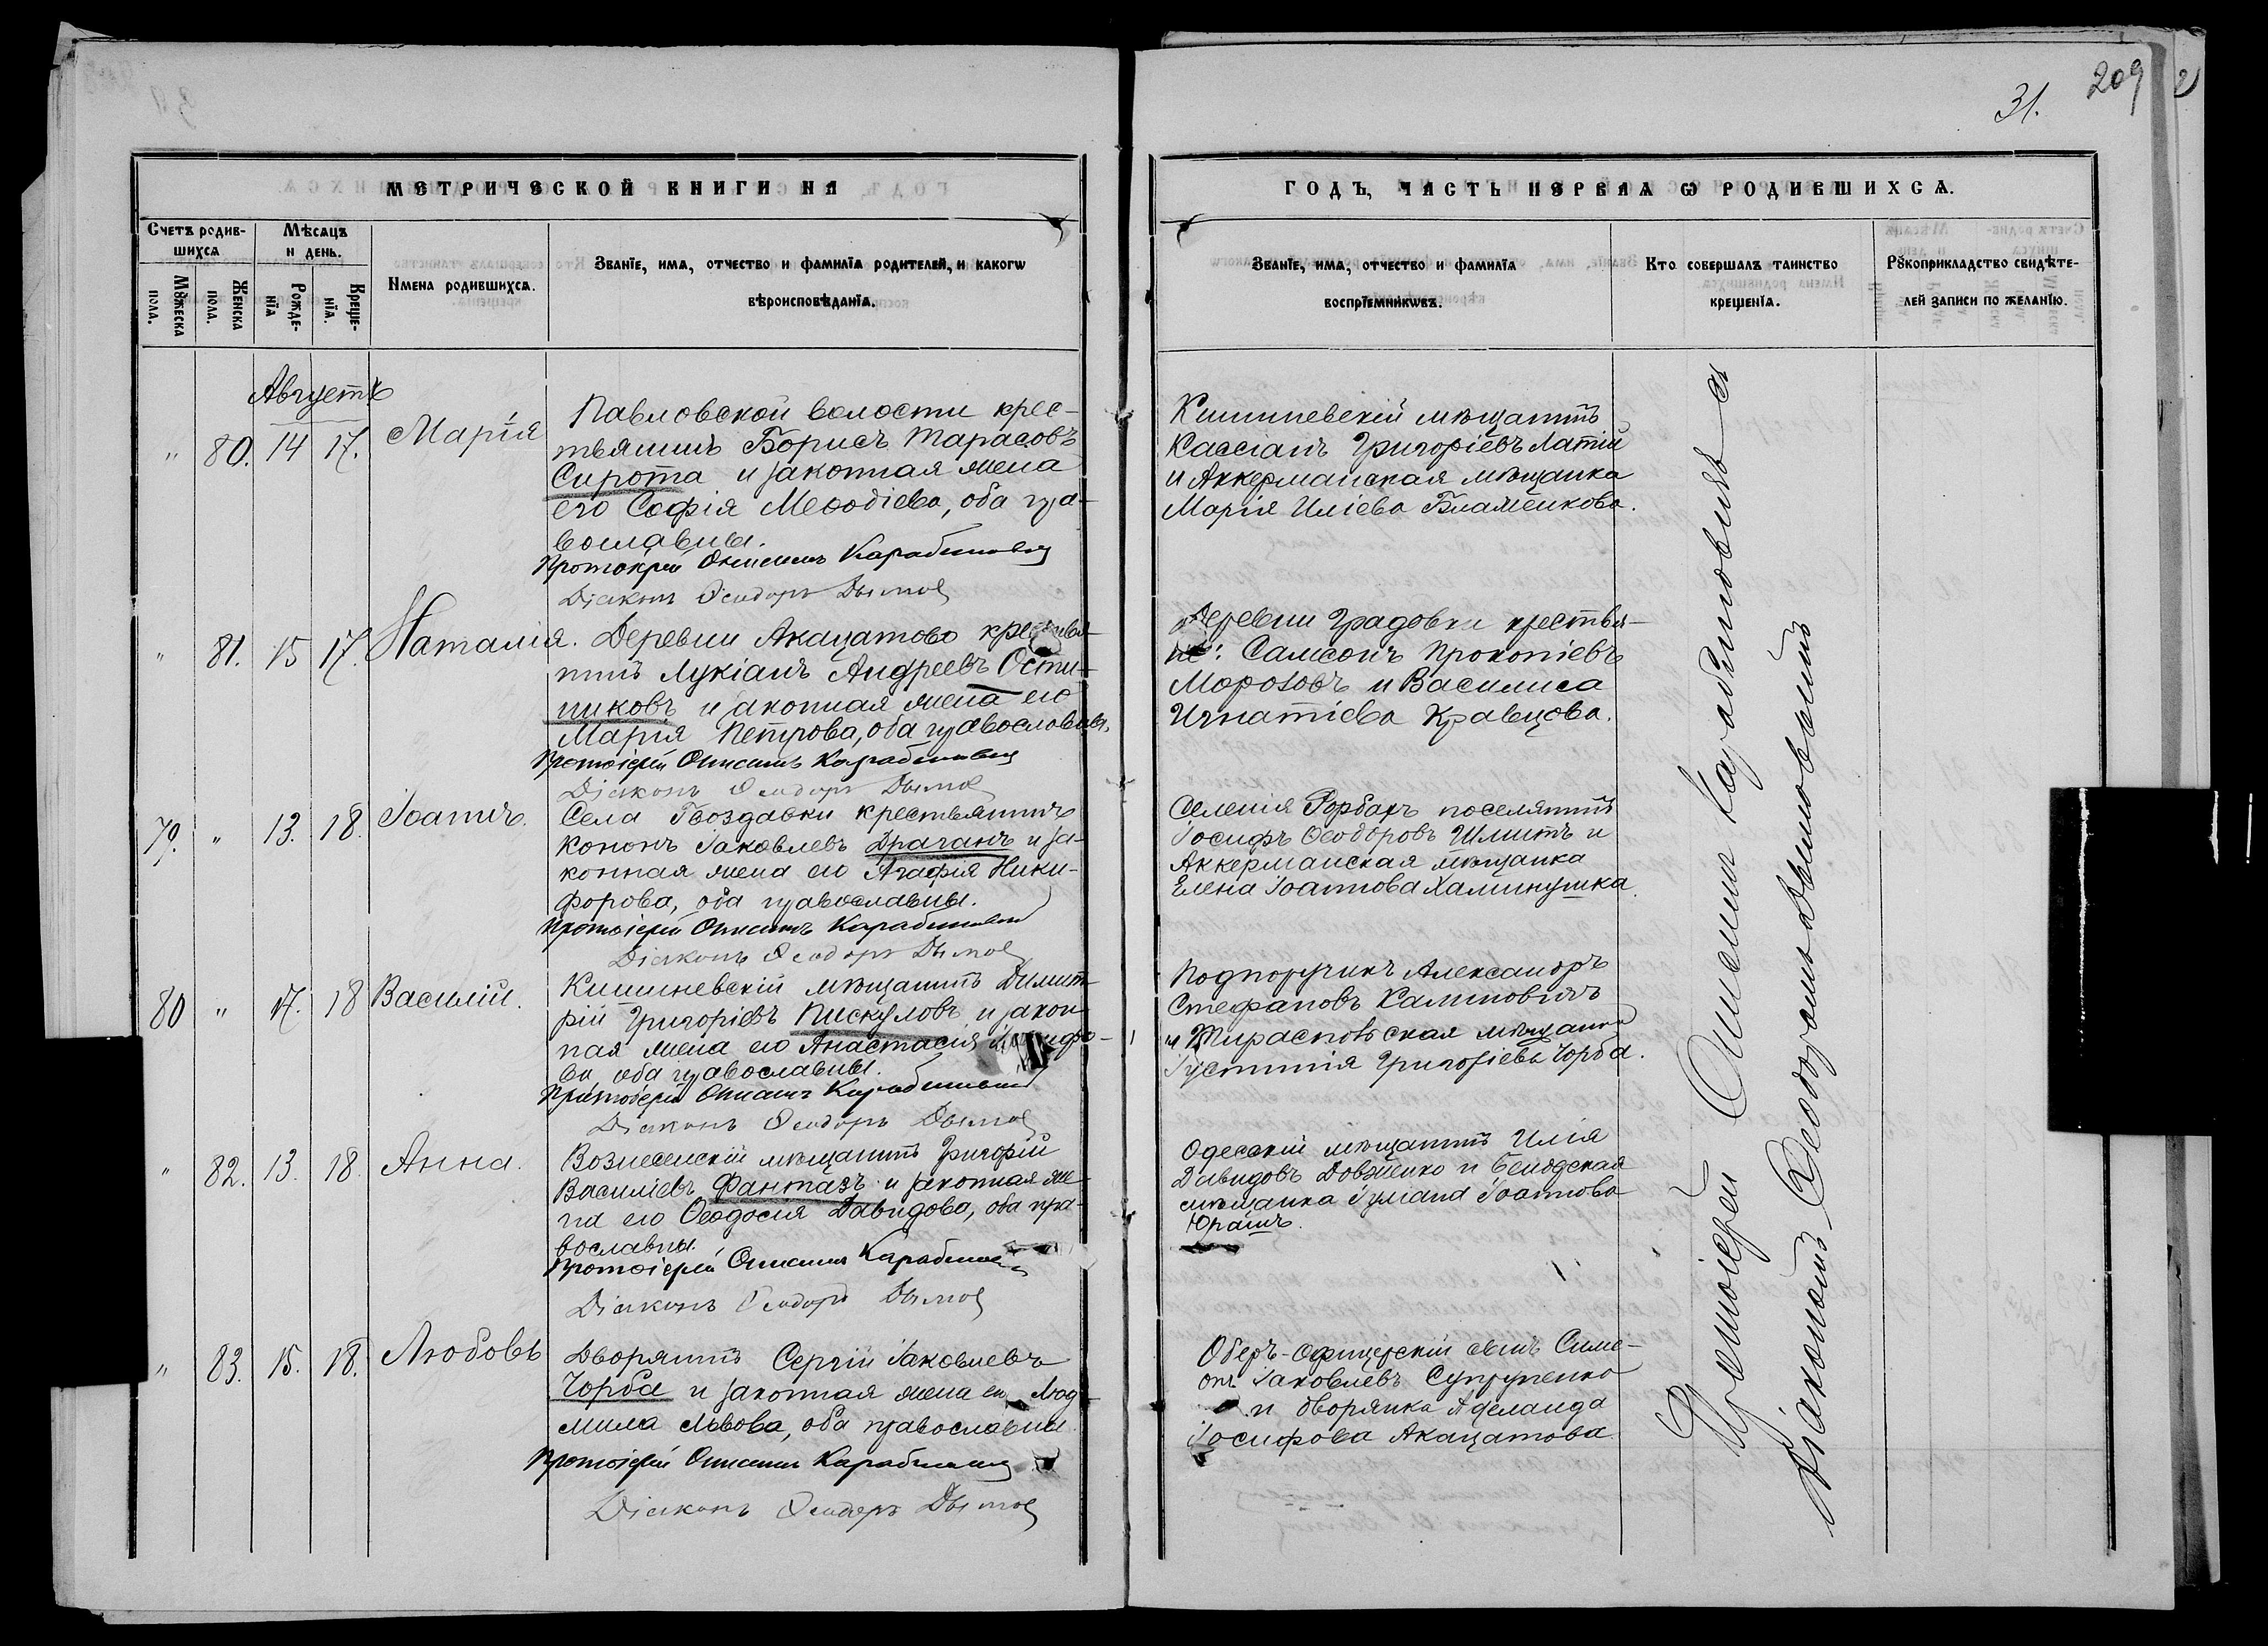 31.
209
МЕТРИЧЕСКОЙ КНИГИ НА
ГОДЪ, ЧАСТЬ ПЕРВАЯ Ѡ РОДИВШИХСѦ.
Счетъ родив-
шихсѧ
Мѣсѧцъ
и день.
Мꙋжеска
пола.
Женска
пола.
Рожде-
нїѧ
Креще-
нїѧ.
Имена родившихсѧ.
Званїе, имѧ, отчество и фамилїѧ родителей, и какогѡ
вѣроисповѣданїѧ.
Званїе, имѧ, отчество и фамилїѧ
воспрїемникѡвъ.
Кто совершалъ таинство
крещенїѧ.
Рꙋкоприкладство свидѣте-
лей записи по желанїю.
Августъ
" 80. 14 17. Марія
Павловской волости крес-
тьянинъ Борисъ Тарасовъ
Сирота и законная жена
его Софія Меѳодіева, оба пра-
вославны.
Протоіерей Онисимъ Карабиновичъ
Діаконъ Ѳеодоръ Дымов
Кишиневскій мѣщанинъ
Кассіанъ Григоріевъ Латій
и Аккерманская мѣщанка
Марія Иліева
" 81. 15 17. Наталія.
Деревни Акацатово крестья-
нинъ Лукіанъ Андреевъ Ости-
никовъ и законная жена его
Марія Петрова, оба православны.
Протоіерей Онисимъ Карабиновичъ
Діаконъ Ѳеодоръ Дымов
Деревни Градовки крестья-
не: Самсонъ Прокопіевъ
Морозовъ и Василиса
Игнатіева Кравцова.
79. " 13. 18. Іоаннъ.
Села Гвоздавки крестьянинъ
Кононъ Іаковлевъ Драганъ и за-
конная жена его Агафія Ники-
форова, оба православны.
Протоіерей Онисимъ Карабиновичъ
Діаконъ Ѳеодоръ Дымов
Селенія поселянинъ
Іосифъ Ѳеодоровъ Шмитъ и
Аккерманская мѣщанка
Елена Іоаннова Халимушка
80 " 17. 18 Василій.
Кишиневскій мѣщанинъ Димит-
рій Григоріевъ Пискуловъ и закон-
ная жена его Анастасія
ва оба православны.
Протоіерей Онисимъ Карабиновичъ
Діаконъ Ѳеодоръ Дымов
Подпоручикъ Александръ
Стефановъ Калиновичъ
и Тираспольская мѣщанка
Іустинія Григоріева Чорба.
" 82. 13. 18. Анна.
Вознесенскій мѣщанинъ Григорій
Василіевъ Фантазъ и законная же-
на его Ѳеодосія Давидова, оба пра-
вославны.
Протоіерей Онисимъ Карабинович
Діаконъ Ѳеодоръ Дымов
Одесскій мѣщанинъ Илія
Давидовъ Довженко и
мѣщанка Іуліана Іоаннова
Юрашъ.
" 83. 15. 18. Любовь
Дворянинъ Сергій Іаковлевъ
Чорба и законная жена его Люд-
мила Львова, оба православны
Протоіерей Онисимъ Карабинович
Діаконъ Ѳеодоръ Дымов
Оберъ-офицерскій сынъ Симе-
онъ Іаковлевъ Супруненко
и дворянка Аделаида
Іосифова Акацатова.
Протоіерей Онисимъ Карабиновичъ съ
Діакономъ Ѳеодоромъ Дымовымъ